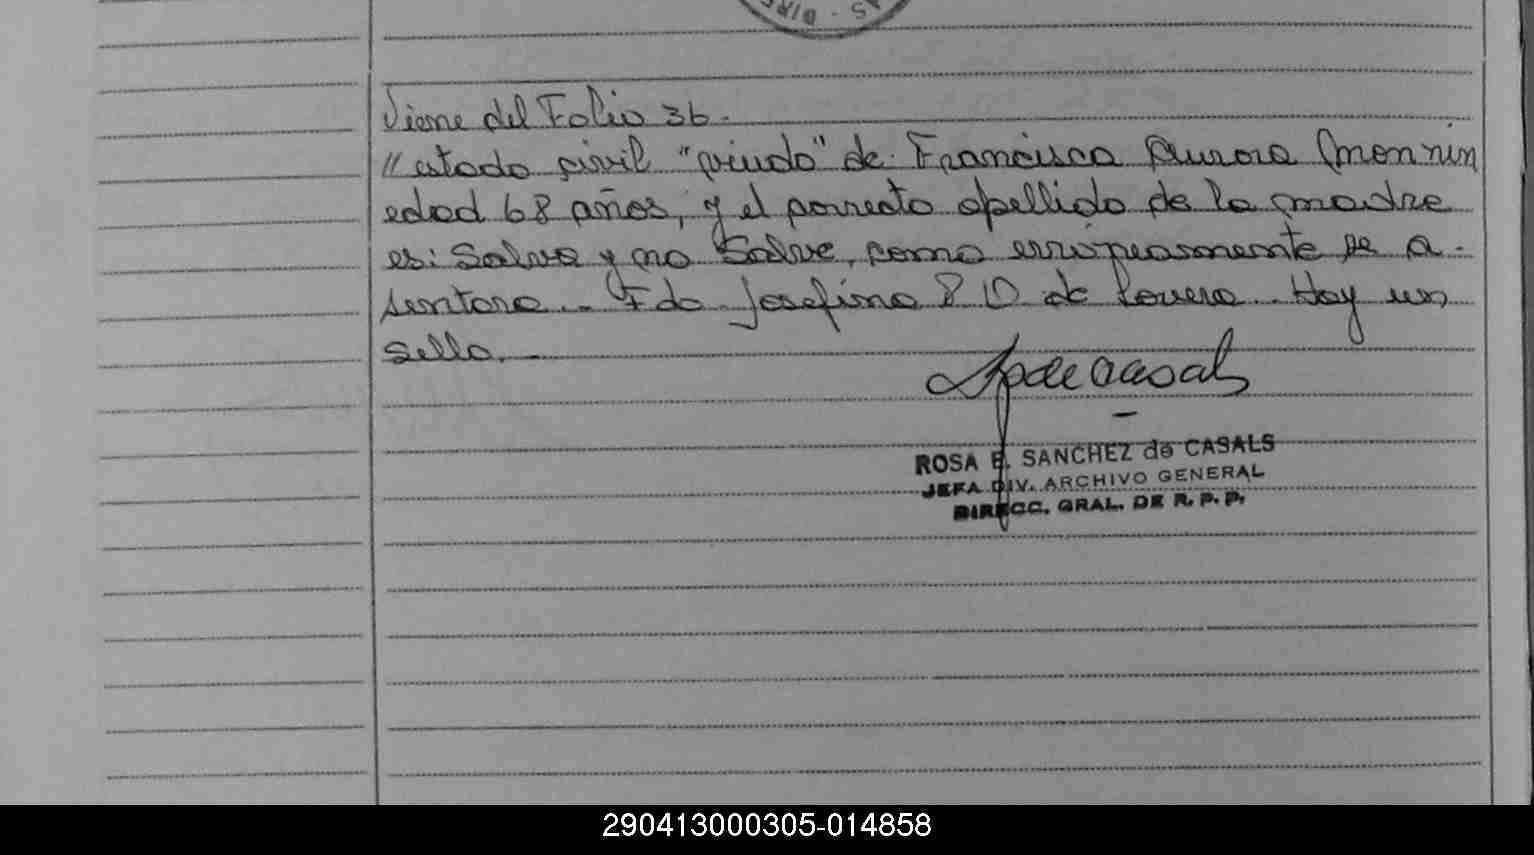 AS - DIRE
Viene del Folio 36.
"estado civil "viudo" de Francisca Aurora Monnin
edad 68 años, y el correcto apellido de la madre
es: Salva y no Salve, como erróneamente se a-
sentara.- Fdo Josefina P D de Lovera. Hay un
sello.-
ROSA E. SANCHEZ de CASALS
JEFA DIV. ARCHIVO GENERAL
DIRECC. GRAL. DE R. P. P.
290413000305-014858